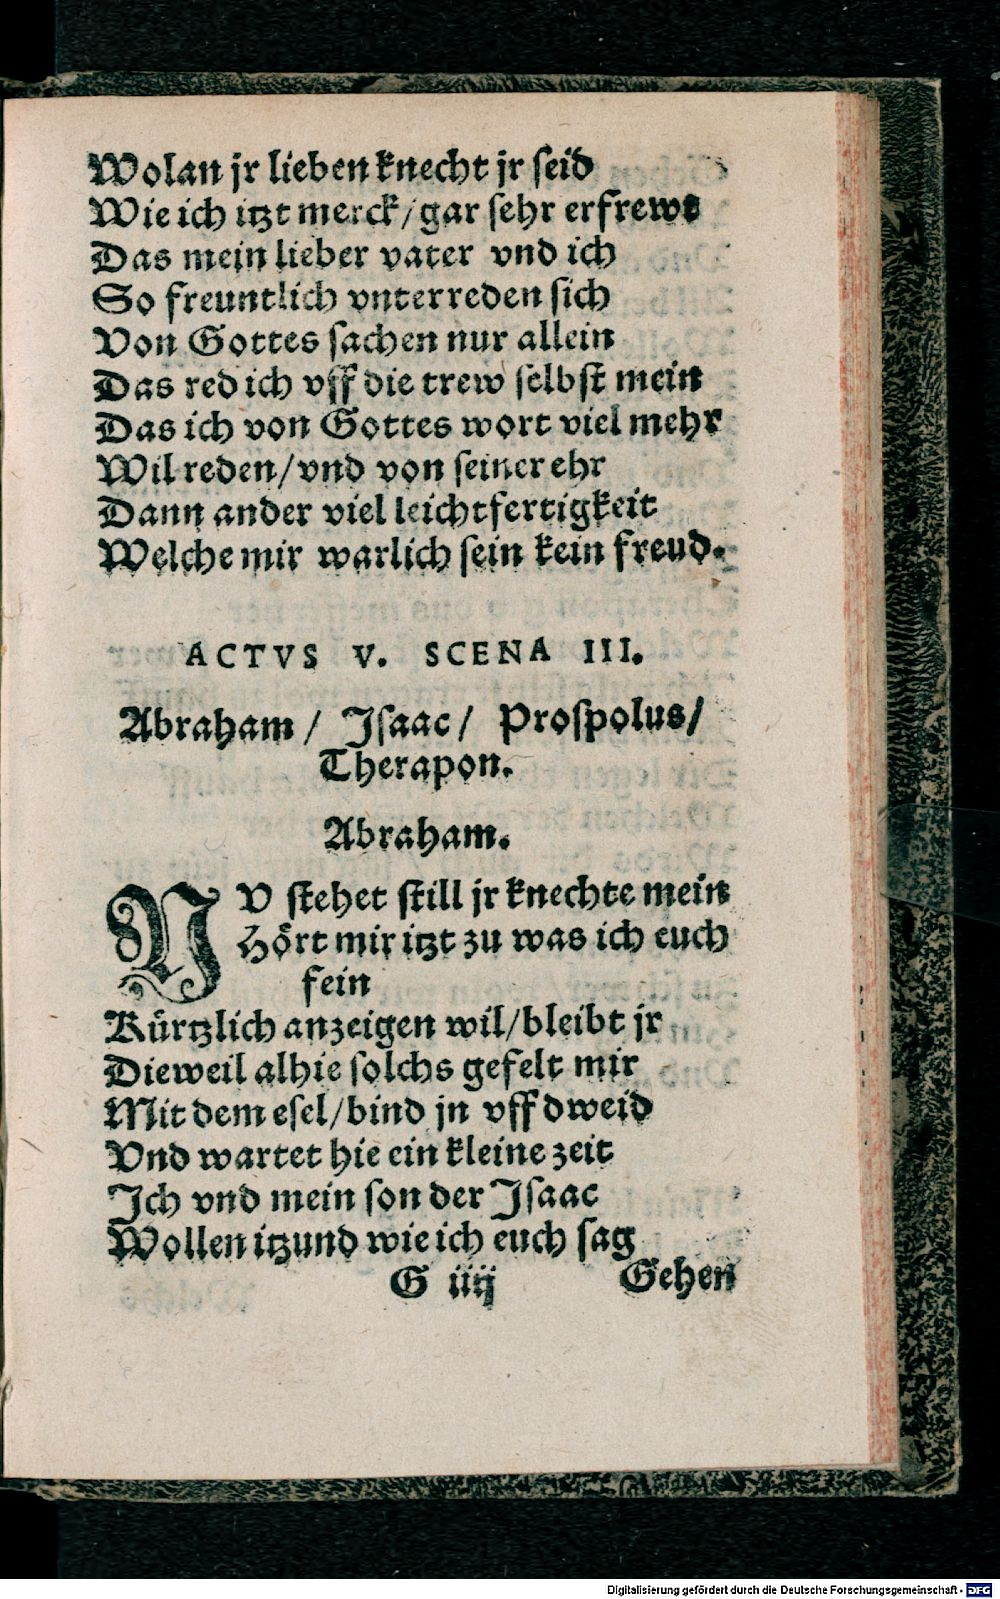 Wolan jr lieben knecht jr seid
Wie ich itzt merck/gar sehr erfrewt
Das mein lieber vater vnd ich
So freuntlich vnterreden sich
Von Gottes sachen nur allein
Das red ich vff die trew selbst mein
Das ich von Gottes wort viel mehr
Wil reden/vnd von seiner ehr
Dann ander viel leichtfertigkeit
Welche mir warlich sein kein freud.
ACTVS V. SCENA III.
Abraham/ Isaac/ Prospolus/
Therapon.
Abraham.
NV stehet still jr knechte mein
Hört mir itzt zu was ich euch
fein
Kürtzlich anzeigen wil/bleibt jr
Dieweil alhie solchs gefelt mir
Mit dem esel/bind jn vff dweid
Vnd wartet hie ein kleine zeit
Ich vnd mein son der Isaac
Wollen itzund wie ich euch sag
G iiij Gehen
Digitalisierung gefördert durch die Deutsche Forschungsgemeinschaft - DFG